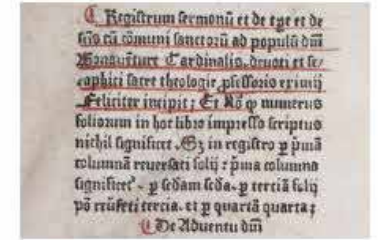 Registrum sermonū et de tꝑe et de
sctis cū cōmuni sanctorū ad populū dn̄i
Bonauēture Cardinalis. deuoti et se/
raphici sacre theologie ꝓfessoris eximij
Feliciter incipit: Et Nō ꝙ numerus
foliorum in hoc libro impresso scriptus
nichil significet. Sꝫ in registro ꝑ pͥmā
columnā reuersati folij: pͥma columna
significet᷑. ꝑ scdam scda. ꝑ terciā folij
pō tercia. et ꝑ quartā quarta:
De Aduentu dn̄i